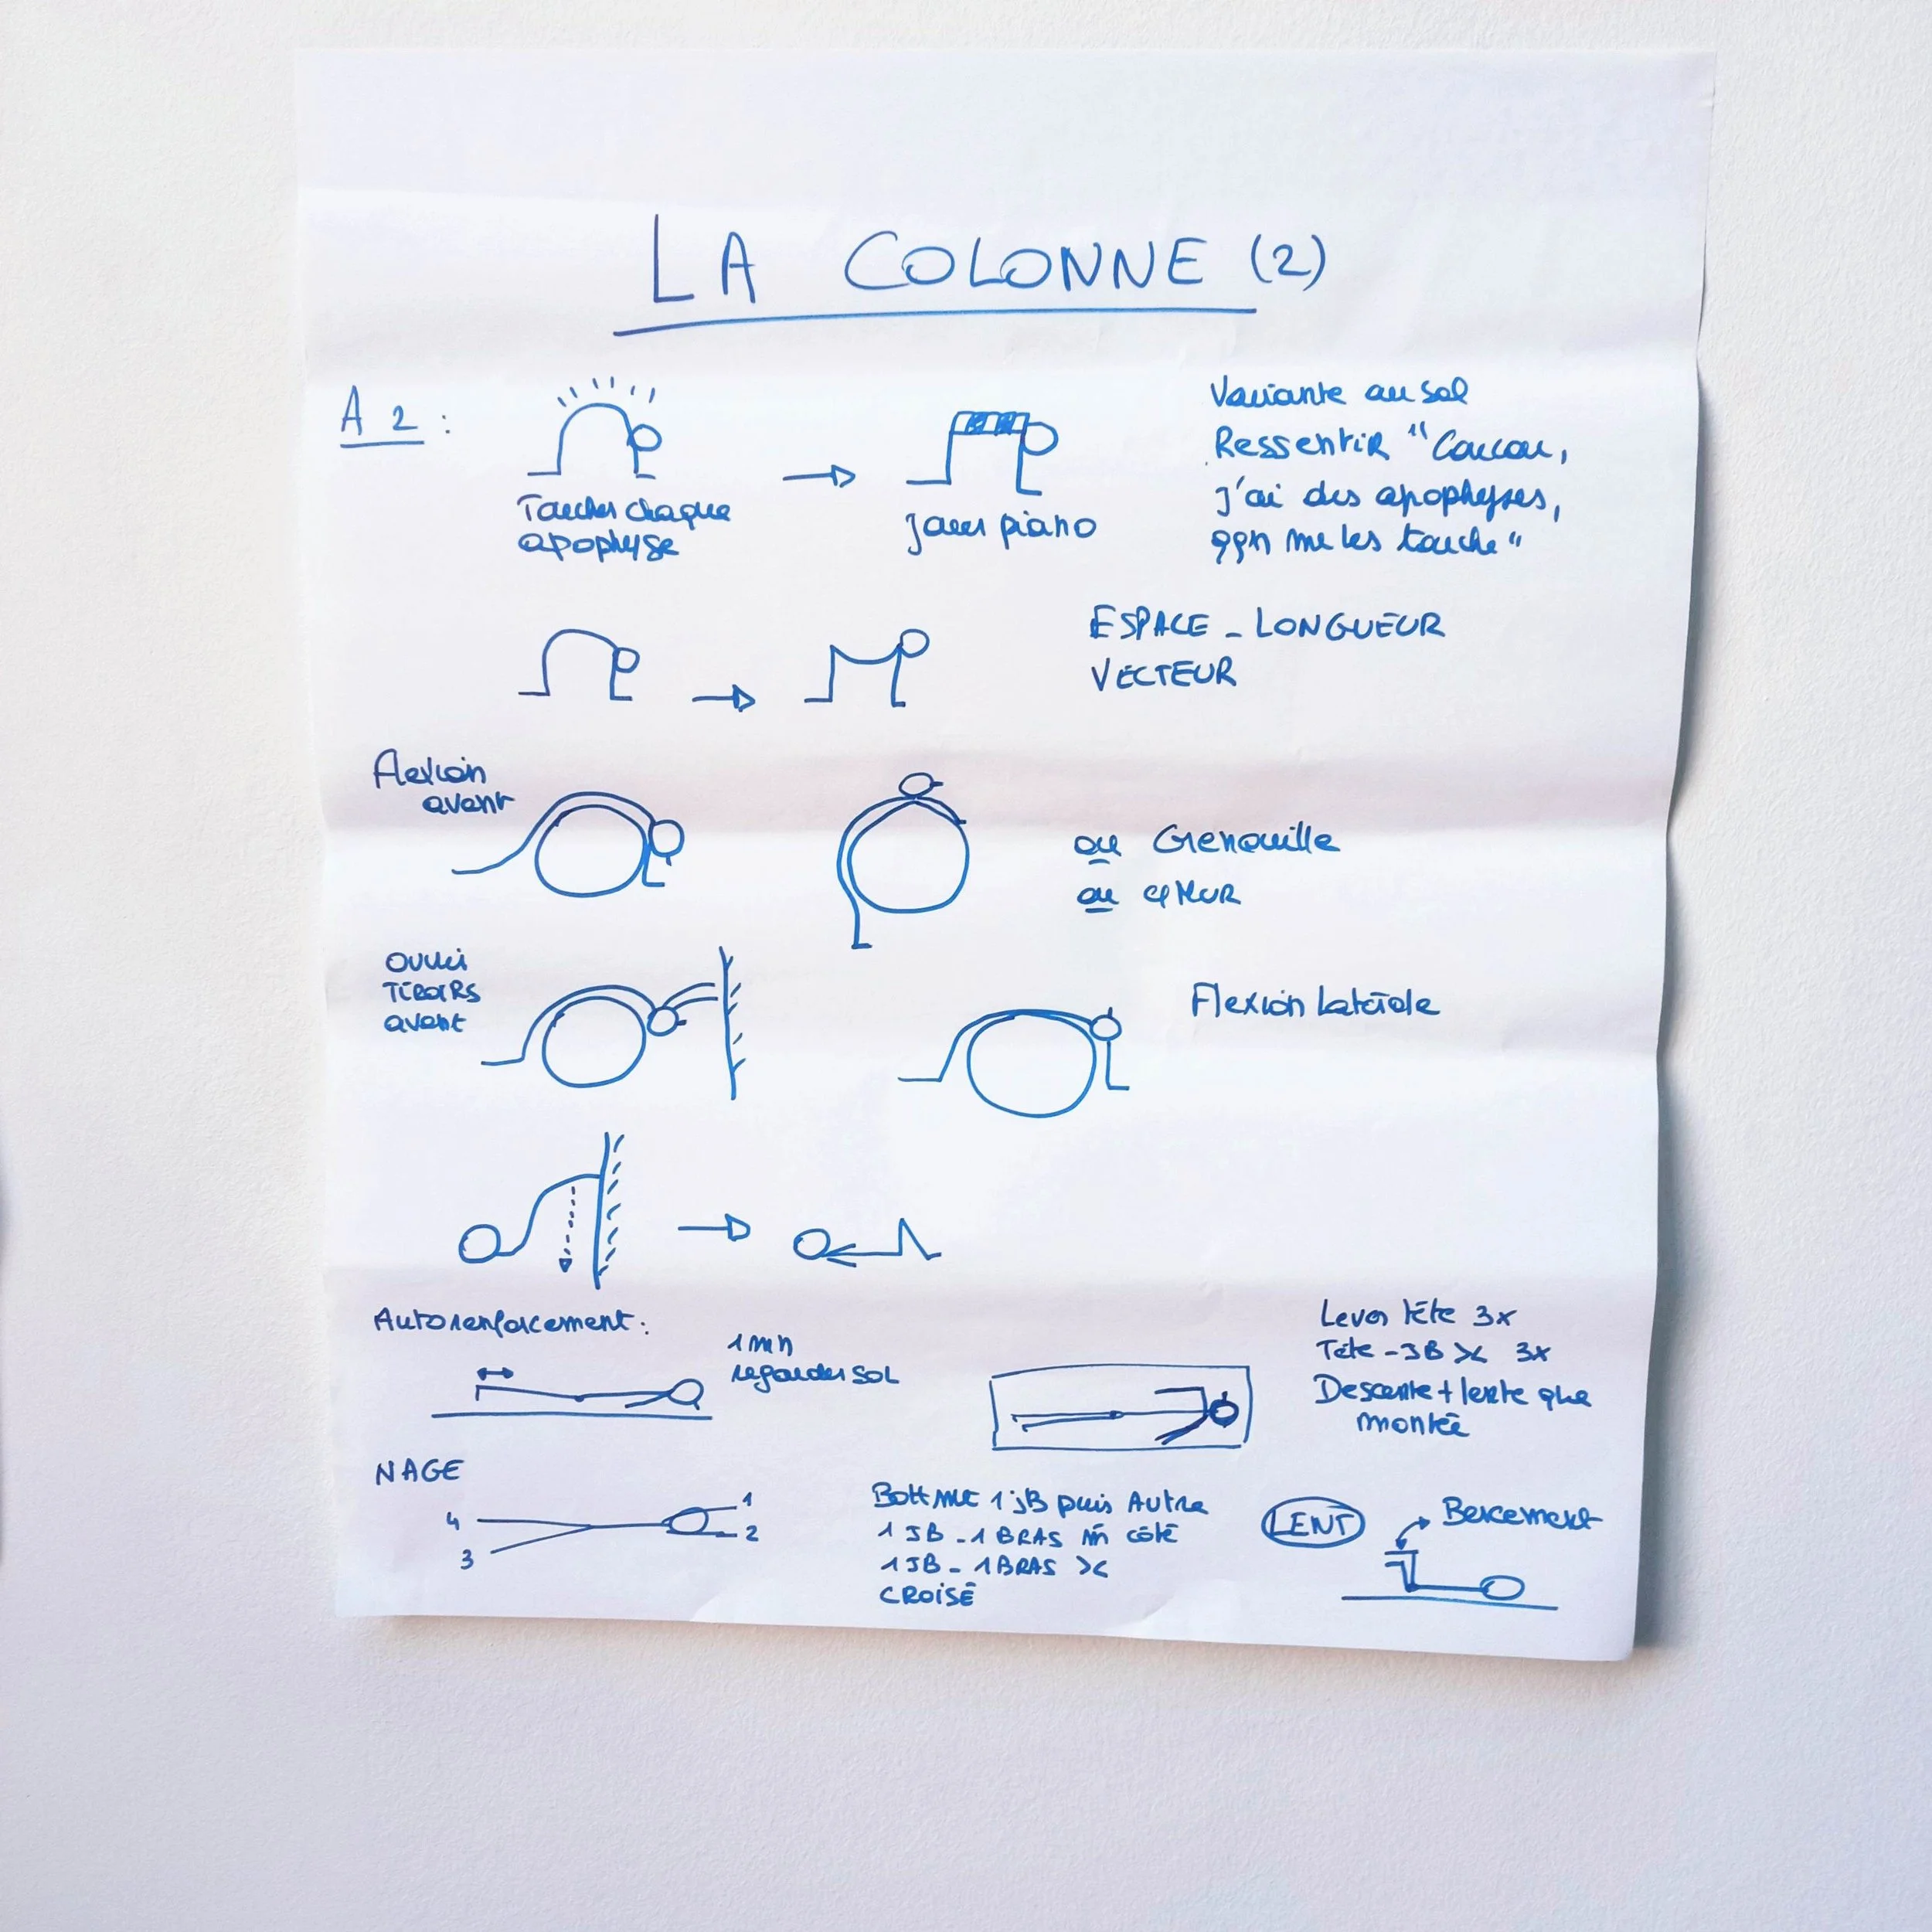 LA COLONNE (2)
A2 :
Toucher chaque
apophyse
Jouer piano
Variante au sol
Ressentir "Coucou,
j'ai des apophyses,
qqn me les touche"
ESPACE - LONGUEUR
VECTEUR
Flexion
avant
ou Grenouille
ou MUR
Ouvrir
TIROIRS
avant
Flexion Latérale
Autorenforcement :
1 mn
regarder SOL
Lever tête 3x
Tête - JB >< 3x
Descente + lente que
montée
NAGE
4
3
1
2
Battmt 1 JB puis Autre
1 JB - 1 BRAS m̂ côté
1 JB - 1 BRAS ><
CROISÉ
LENT
Bercement